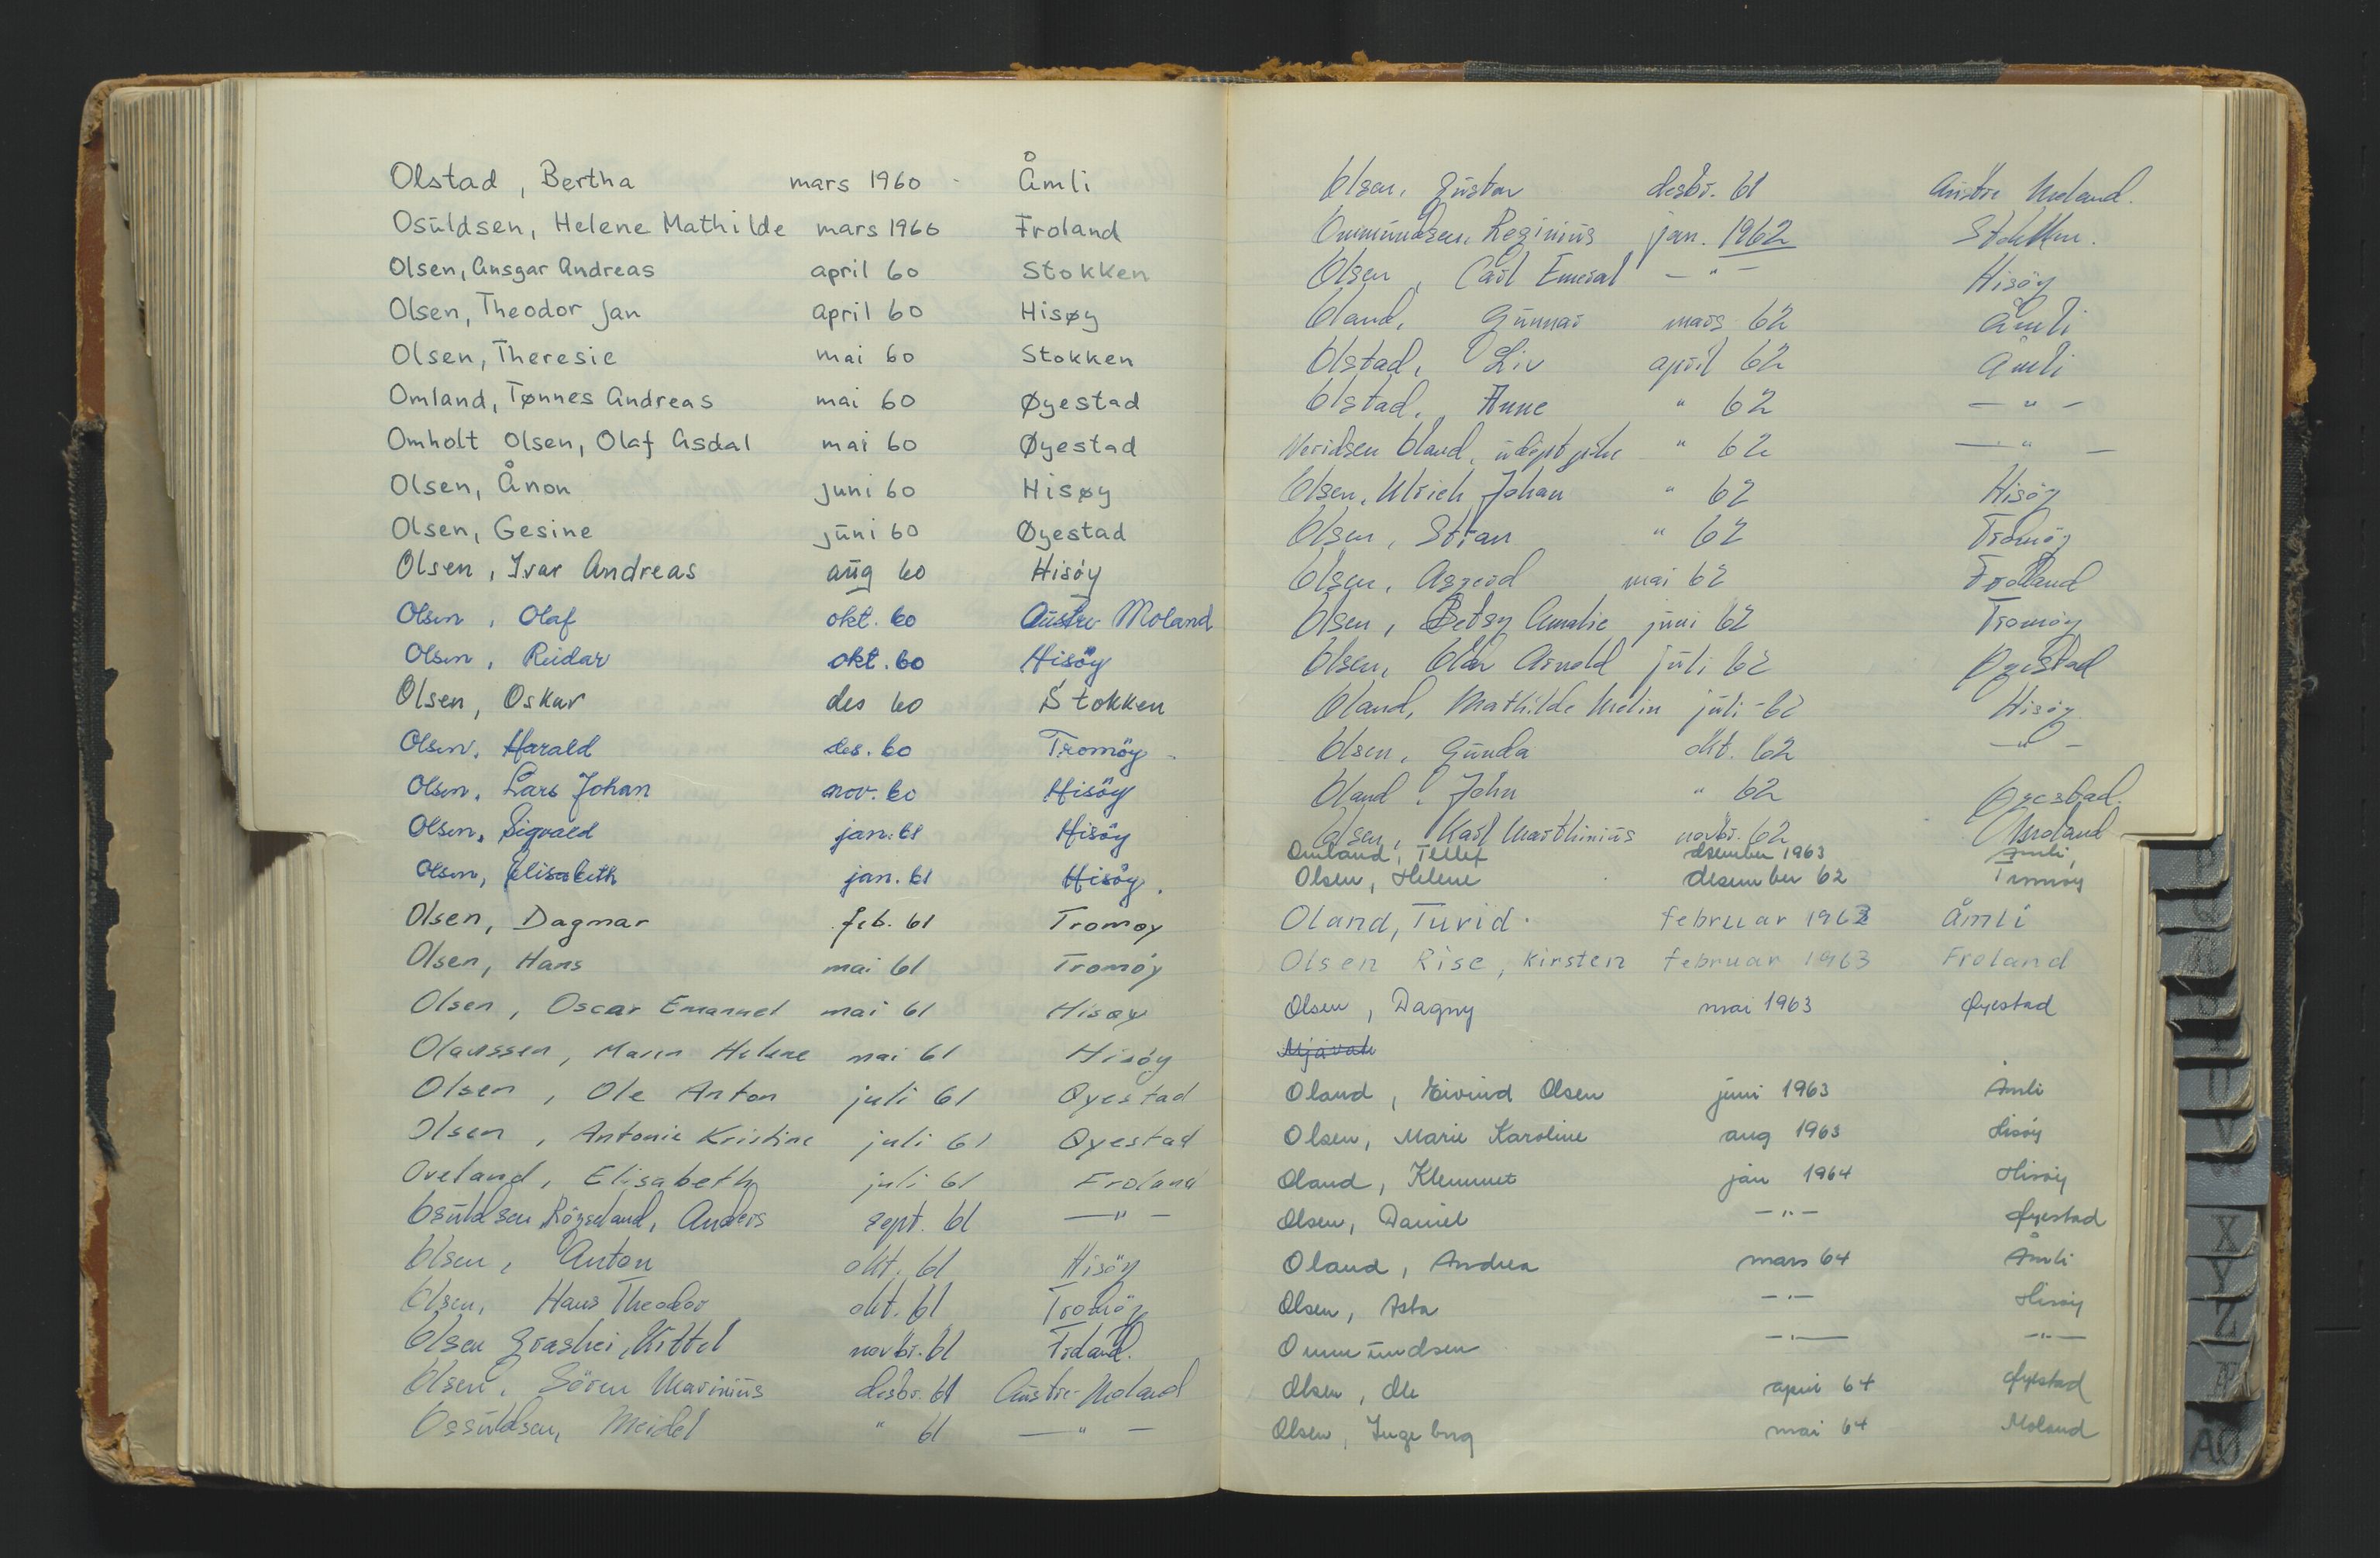 Olstad, Bertha mars 1960 - Åmli
Osūldsen, Helene Mathilde mars 1960 Froland
Olsen, Ansgar Andreas april 60 Stokken
Olsen, Theodor Jan april 60 Hisøy
Olsen, Theresie mai 60 Stokken
Omland, Tønnes Andreas mai 60 Øyestad
Omholt Olsen, Olaf Asdal mai 60 Øyestad
Olsen, Ånon juni 60 Hisøy
Olsen, Gesine jūni 60 Øyestad
Olsen, Ivar Andreas aūg 60 Hisöy
Olsen, Olaf okt. 60 Aūstre Moland
Olsen, Reidar okt. 60 Hisöy
Olsen, Oskar des 60 Stokken
Olsen, Harald des. 60 Tromöy -
Olsen, Lars Johan nov. 60 Hisöy
Olsen, Sigvald jan. 61 Hisöy
Olsen, Elisabeth jan. 61 Hisöy.
Olsen, Dagmar feb. 61 Tromøy
Olsen, Hans mai 61 Tromöy
Olsen, Oscar Emanuel mai 61 Hisøy
Olaussen, Maren Helene mai 61 Hisöy
Olsen, Ole Anton juli 61 Øyestad
Olsen, Antonie Kristine juli 61 Øyestad
Oveland, Elisabeth juli 61 Froland
Osūldsen, Anders sept. 61 —"—
Olsen, Anton okt. 61 Hisöy
Olsen, Hans Theodor okt. 61 Tromöy
Olsen Kittel novbr. 61 Froland.
Olsen, Sören Marinius desbr. 61 Aūstre-Moland
Ossūldsen, Meidel " 61 —"—
Olsen, Gūstav desbr. 61 Aūstre Moland.
Ommūndsen, Reginiūs jan. 1962 Stokken.
Olsen, Carl —"— Hisöy
Oland, Gūnnar mars 62 Åmli
Olstad, Liv april 62 Åmli
Olstad, Anne " 62 —"—
Oland, " 62 —"—
Olsen, Ulrich Johan " 62 Hisöy
Olsen, Stian " 62 Tromöy
Olsen, mai 62 Froland
Olsen, Betsy Amalie jūni 62 Tromöy
Olsen, Olav Arnold jūli 62 Øyestad
Oland, Mathilde jūli -62 Hisöy
Olsen, Gūnda okt. 62 —"—
Oland, John " 62 Øyestad.
Olsen, Karl Marthiniūs novbr. 62 Moland
Omland, Tellef desember 1963 Åmli,
Olsen, Helene desember 62 Tromøy
Oland, Turid. februar 1963 Åmli
Olsen Rise, Kirsten februar 1963 Froland
Olsen, Dagny mai 1963 Øyestad
Oland, Eivind Olsen juni 1963 Åmli
Olsen, Marie Karoline aug 1963 Hisöy
Oland, Klemmet jan 1964 Hisöy
Olsen, Daniel —"— Øyestad
Oland, Andrea mars 64 Åmli
Olsen, Asta —"— Hisöy
Ommūndsen —"— —"—
Olsen, Ole april 64 Øyestad
Olsen, Ingeborg mai 64 Moland
X
Y
Z
Æ
AØ